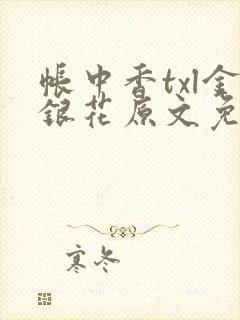 帐中香txl金
银花原文免
寒冬